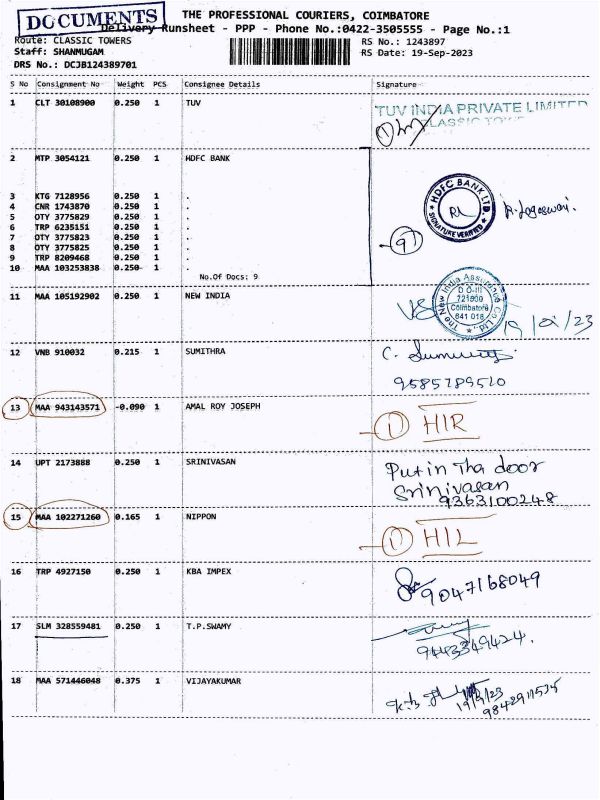 DOCUMENTS
THE PROFESSIONAL COURIERS, COIMBATORE
Delivery Runsheet - PPP - Phone No.:0422-3505555 - Page No.:1
Route: CLASSIC TOWERS RS No.: 1243897
Staff: SHANMUGAM RS Date: 19-Sep-2023
DRS No.: DCJB124389701
S No Consignment No Weight PCS Consignee Details Signature
1 CLT 30108900 0.250 1 TUV
TUV INDIA PRIVATE LIMITED
CLASSIC TOWER
1
2 MTP 3054121 0.250 1 HDFC BANK
3 KTG 7128956 0.250 1 .
4 CNR 1743870 0.250 1 .
5 OTY 3775829 0.250 1 .
6 TRP 6235151 0.250 1 .
7 OTY 3775823 0.250 1 .
8 OTY 3775825 0.250 1 .
9 TRP 8209468 0.250 1 .
10 MAA 103253838 0.250 1 .
No.Of Docs: 9
HDFC BANK LTD.
SIGNATURE VERIFIED
9
11 MAA 105192902 0.250 1 NEW INDIA
The New India Assurance Co Ltd.
D O-III
721600
Coimbatore
641 018
12 VNB 910032 0.215 1 SUMITHRA
9585789510
13 MAA 943143571 -0.090 1 AMAL ROY JOSEPH
1 HIR
14 UPT 2173888 0.250 1 SRINIVASAN
Put in Tha door
Srinivasan
9363100248
15 MAA 102271260 0.165 1 NIPPON
1 HIL
16 TRP 4927150 0.250 1 KBA IMPEX
9047168049
17 SLM 328559481 0.250 1 T.P.SWAMY
9443349424.
18 MAA 571446048 0.375 1 VIJAYAKUMAR
19/9/23